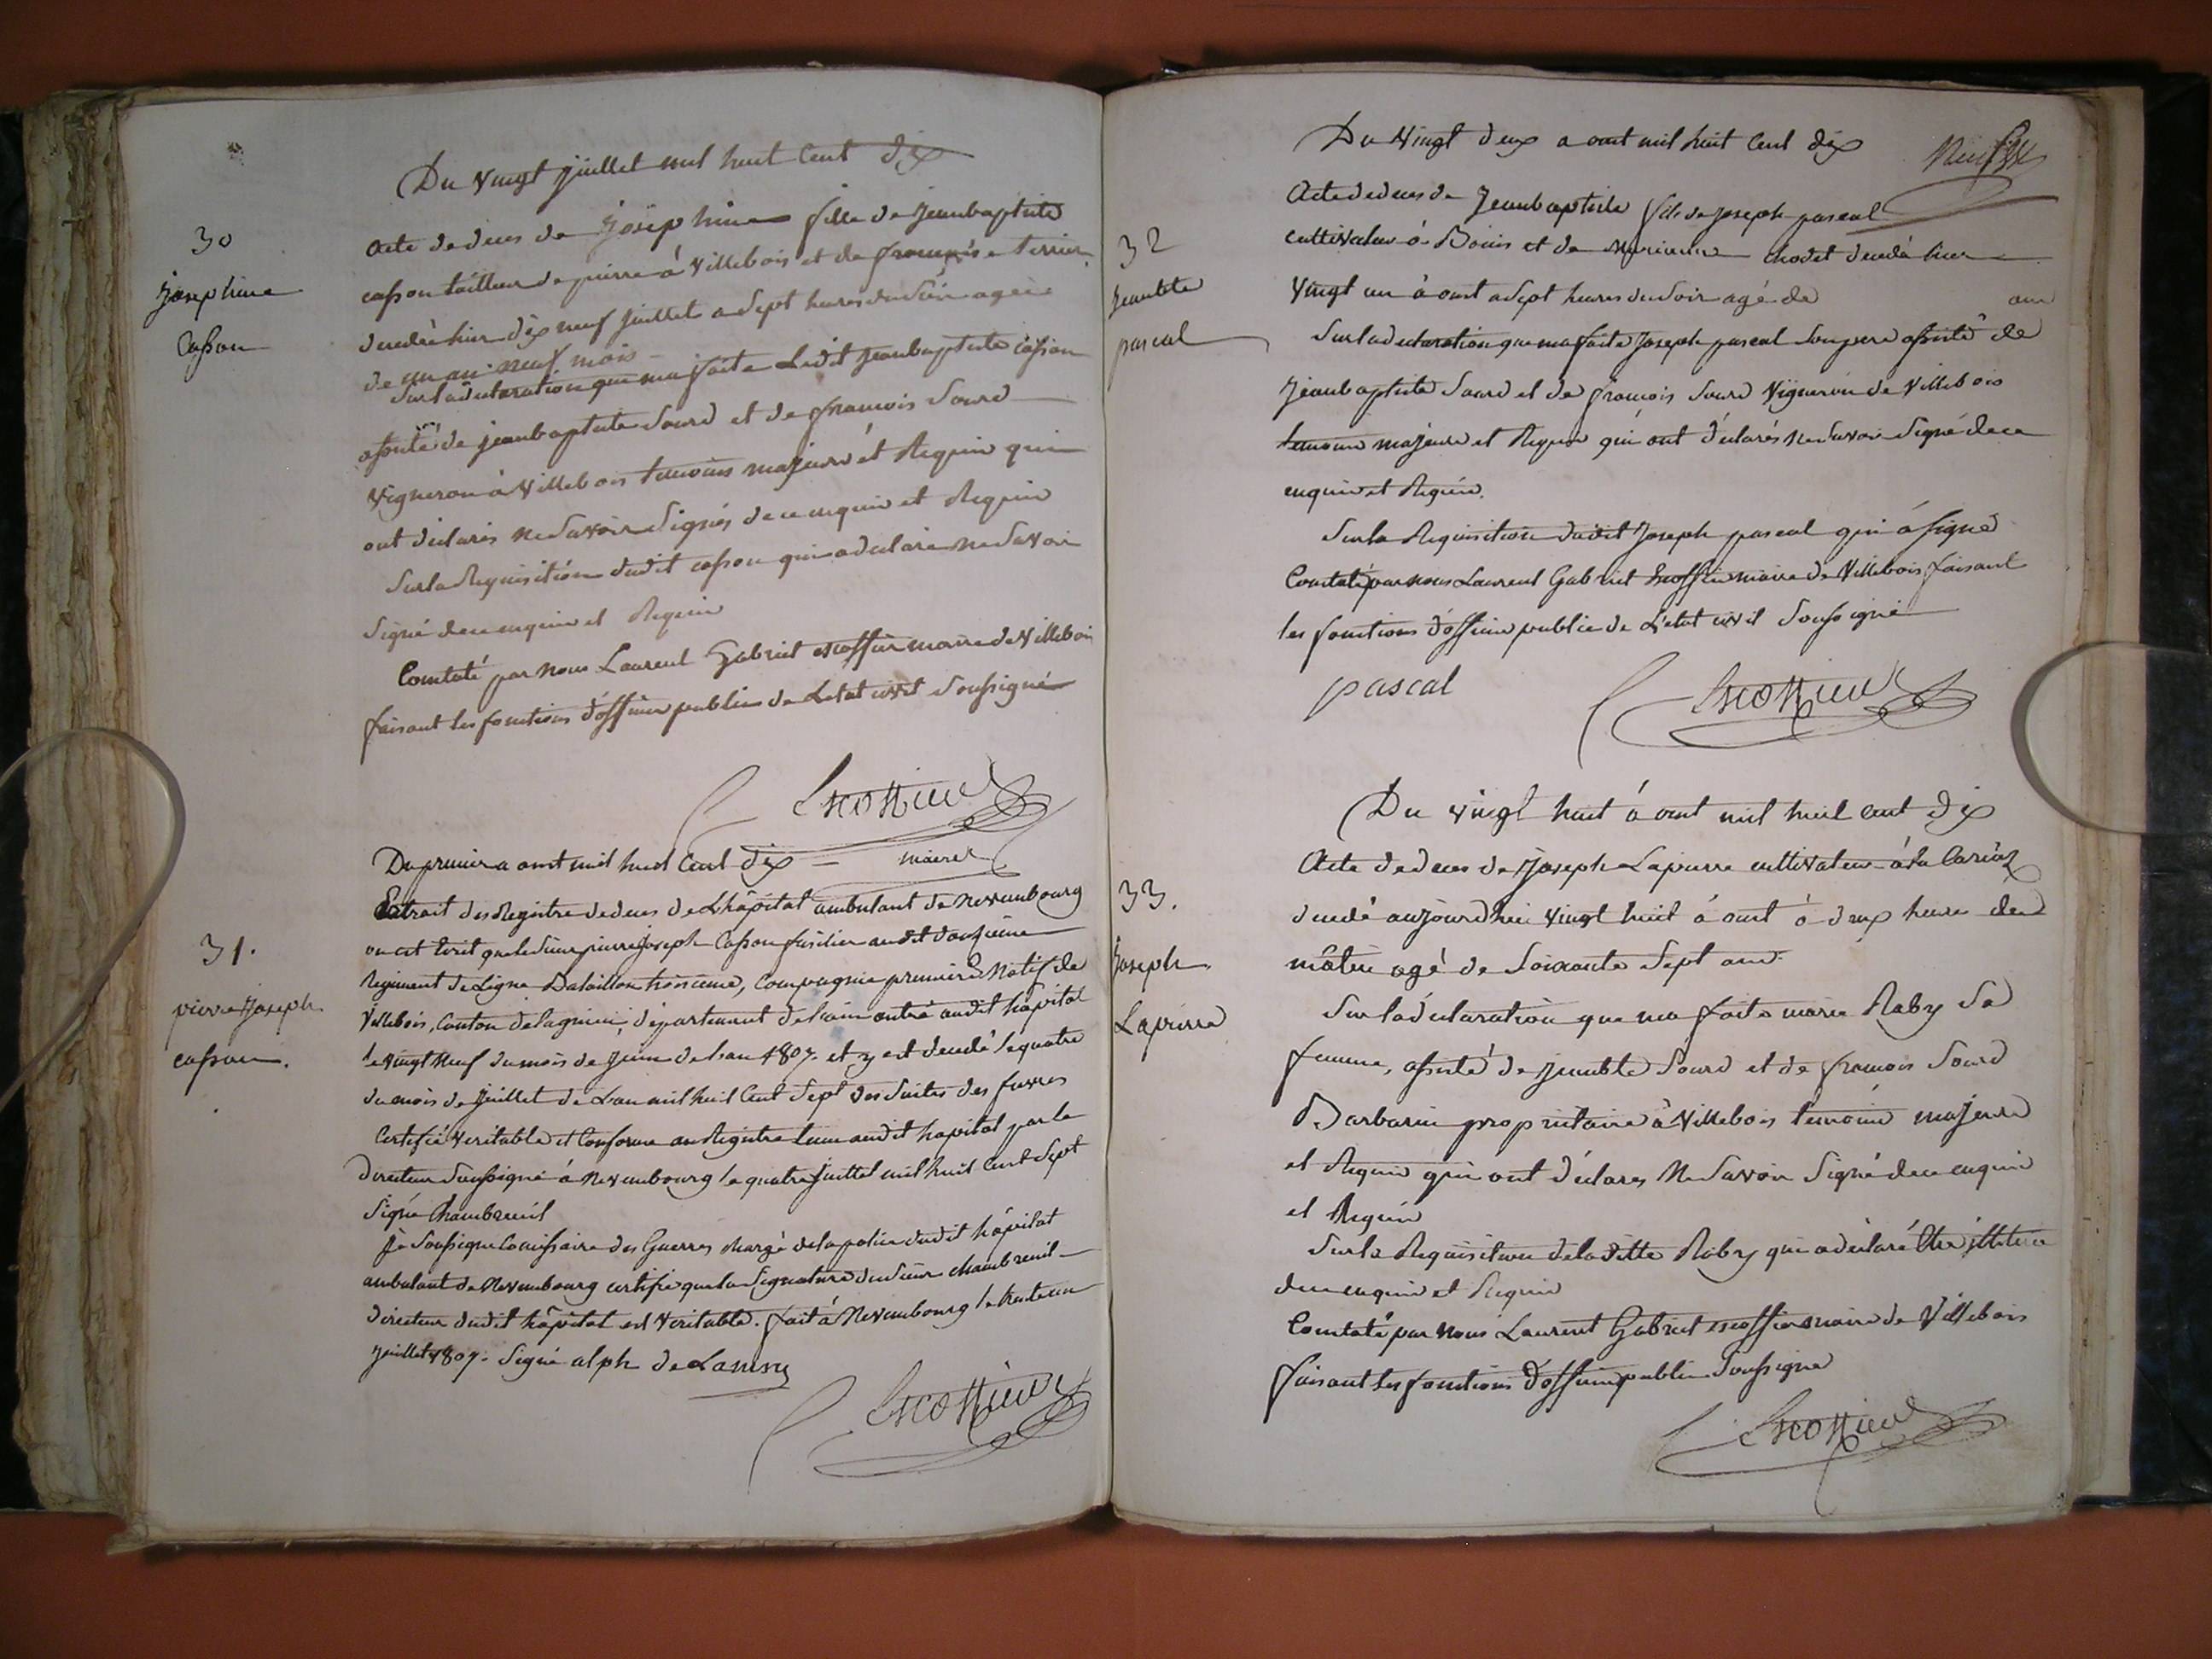 Du vingt juillet mil huit Cent dix
30
Josephine
Casson
acte de deces de josephine fille de jeanbaptiste
casson tailleur de pierre à villebois et de françoise terrier
decedée hier dix neuf juillet a sept heures du Soir agée
de un an neuf mois
Sur la declaration que ma faite Ledit jeanbaptiste casson
assisté de jeanbaptiste Sourd et de françois Sourd
vigneron à villebois temoins majeurs et Requis qui
ont declarés ne Savoir Signés de ce enquis et Requis
Sur la Requisition dudit casson qui a declaré ne Savoir
Signé de ce enquis et Requis
Contaté par nous Laurent Gabriel escoffier maire de villebois
faisant les fonctions d'officier public de Letat civil Soussigné
Escoffier
maire
Du premier a out mil huit Cent dix
31.
pierre Joseph
casson.
Extrait des Registre de deces de L'hôpital ambulant de
ou est écrit que le Sieur pierre joseph Casson fusilier audit douzieme
Regiment de Ligne Bataillon troisieme, Compagnie premiere Natif de
Villebois, Canton de lagnieu, departement de l'ain entré audit hôpital
le vingt neuf du mois de juin de l'an 1807. et y est decedé le quatre
du mois de juillet de L'an mil huit Cent Sept des Suites des fievres
Certifié veritable et Conforme au Registre tenu audit hopital par le
directeur Soussigné à le quatre juillet mil huit Cent Sept
Signé Chambreuil
je Soussigné Comissaire des Guerres chargé de la police dudit hôpital
ambulant de certifie que la Signature du Sieur chambreuil
directeur dudit hôpital est veritable. fait à le trente un
juillet 1807. Signé alph de
Escoffier
Du vingt deux a out mil huit Cent dix
32
jeanbte
pascal
Acte de deces de Jeanbaptiste fils de joseph pascal
cultivateur à Bouis et de chodet decedé hier
vingt un à out a Sept heures du Soir agé de ans
Sur la declaration que ma faite Joseph pascal Son pere assisté de
Jeanbaptiste Sourd et de françois Sourd vigneron de villebois
temoins majeurs et Requis qui ont déclarés ne Savoir Signé de ce
enquis et Requis.
Sur la Requisition dudit Joseph pascal qui à Signé
Contaté par nous Laurent Gabriel Escoffier maire de villebois faisant
les fonctions d'officier public de L'etat civil Soussigné
pascal
Escoffier
Du vingt huit à out mil huit cent dix
33.
Joseph
Lapierre
Acte de deces de Joseph Lapierre cultivateur à la
decedé aujourdhui vingt huit à out à deux heures de
mâtin agé de Soixante Sept ans.
Sur la déclaration que ma faite marie Raby Sa
femme, assisté de jeanbte Sourd et de françois Sourd
Barbarin proprietaire à villebois temoins majeurs
et Requis qui ont déclarés ne Savoir Signé de ce enquis
et Requis
Sur la Requisition de laditte Raby qui a déclaré être illiterée
de ce enquis et Requis
Contaté par nous Laurent Gabriel escoffier maire de Villebois
faisant les fonctions d'officier public Soussigné
Escoffier